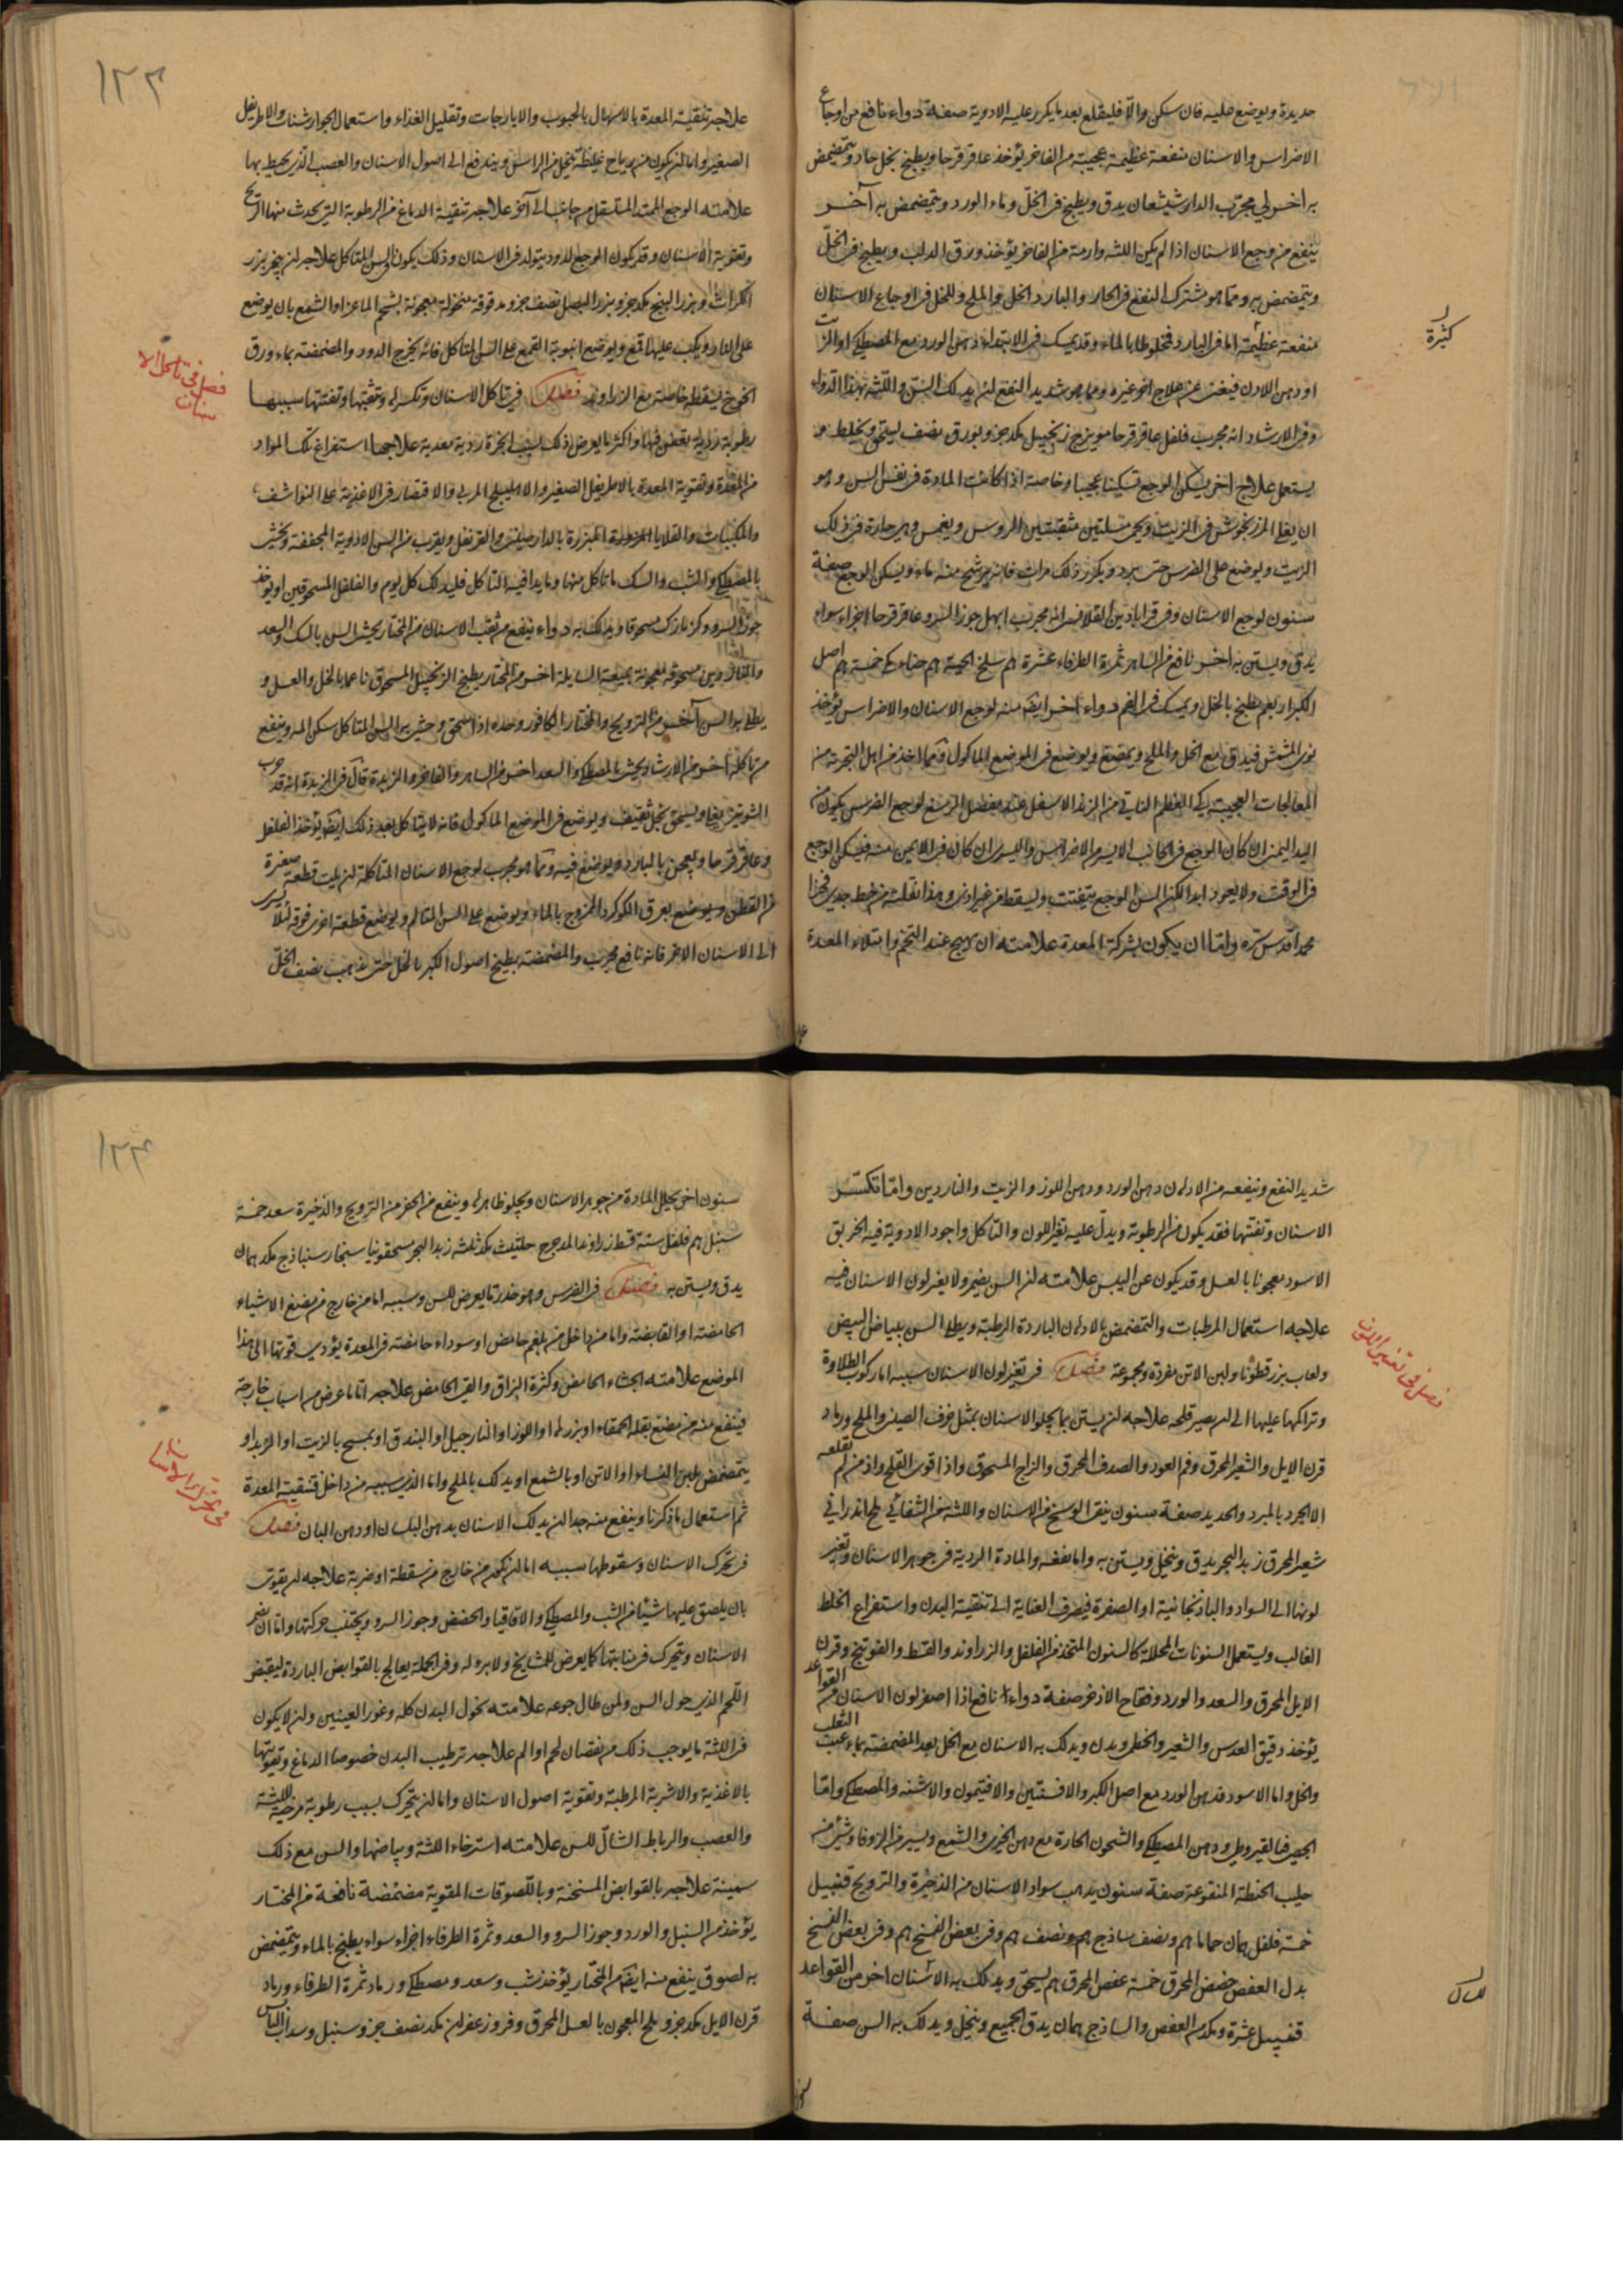 حديدة ويوضع عليه فان سكن والّا فليقلع بعد ما يكرر عليه الادوية صفة دواء نافع من اوجاع
الاضراس والاسنان منفعة عظيمة عجيبة من الفاخر يؤخذ عاقرقرحا ويطبخ بخل حاد ويتمضمض
به اخر لي مجرّب الدارشيشعان يدق ويطبخ في الخلّ وماء الورد ويتمضمض به آخر
ينفع من وجع الاسنان اذا لم يكن اللثه وارمة من الفاخر يؤخذ ورق الدلب ويطبخ في الخلّ
ويتمضمض به ومما هو مشترك النفع في الحار والبارد الخل والملح وللخل في اوجاع الاسنان
منفعة عظيمة اما في البارد فمخلوطا بالماء وقد يمسك في الابتداء دهن الورد مع المصطكى او الزيت
او دهن اللادن فيغنى عن علاج اخر غيره ومما هو شديد النفع ان يدلك السنّ واللّثه بهذا الدّواء
وفي الارشاد انه مجرب فلفل عاقرقرحا مويزج زنجبيل مكد جزو بورق نصف يستحق ويخلط و
يستعمل علاج اخر يسكن الوجع تسكينا عجيبا وخاصة اذا كانت المادة في نفس السن وهو
ان يغلى المرزنجوش في الزيت ويحمى مسلتين مثقبتين الروس ويغمس وهى حارة في ذلك
الزيت ويوضع على الضرس حتى يبرد ويكرر ذلك مرات فانه يرشح منه ماء ويسكن الوجع صفة
سنون لوجع الاسنان وفي قراباذين القلانسى انه مجرب ابهل جوز السرو عاقرقرحا اجزاء سواء
يدق ويستن به اخر نافع من الساهر ثمرة الطرفاء عشرة هم سلخ الحية هم حناء كل خمسة هم اصل
الكبر اربعه يطبخ بالخل ويمسك في الفم دواء اخر ايضا منه لوجع الاسنان والاضراس يؤخذ
نوى المشمش فيدق مع الخل والملح ويمضغ ويوضع في الموضع الماكول ومما اخذ من اهل التجربة من
المعالجات العجيبة كى العظم الناتي من الزند الاسفل عند مفصل الرسغ لوجع الضرس يكون من
اليد اليمنى ان كان الوجع في الجانب الايسر من الاضراس واليسرى ان كان في الايمن منه فيسكن الوجع
في الوقت ولا يعود ابدا لكن السن الوجع يتفتت ويسقط من غير اذى وهذا نقلته من خط جدى فخرا
محمد اقدس سره واما ان يكون بشركة المعدة علامته ان يهيج عند التخم وامتلاء المعدة
كثيرة
١٢٣
علاجه تنقية المعدة بالاسهال بالحبوب والايارجات وتقليل الغذاء واستعمال الجوارشنات والاطريفل
الصغير واما ان يكون من رياح غليظة تنجلى من الراس ويندفع الى اصول الاسنان والعصب الذى يحيط بها
علامته الوجع الممتد المتنقل من جانب الى آخر علاجه تنقية الدماغ من الرطوبة التى يحدث منها الريح
وتقوية الاسنان وقد يكون الوجع لدود يتولد في الاسنان وذلك يكون فى السن المتاكل علاجه ان يبخر بزر
الكراث وبزر البنج مكد جزو بزر البصل نصف جزو مدقوقة منخولة معجونة بشحم الماعز او الشمع بان يوضع
على النار ويكب عليها قمع ويوضع انبوبة القمع على السن المتاكل فانه يخرج الدود والمضمضة بماء ورق
الخوخ يسقطه خاصة مع الزراوند فصل في تاكل الاسنان وتكسرها وتثقبها وتفتتها سببها
رطوبة ردية تعفن فيها واكثر ما يعرض ذلك بسبب ابخرة ردية معدية علاجها استفراغ تلك المواد
من المعدة وتقوية المعدة بالاطريفل الصغير والاهليلج المربى والاقتصار في الاغذية على النواشف
والمكببات والقلايا المبزرة بالدارصينى والقرنفل ويقرب من السن الادوية المجففة ويحشى
بالمصطكى والشب والسك ما تاكل منها وما يدافيه التاكل فليدلك كل يوم والفلفل المسحوقين او يؤخذ
جوز السرو وكزمازك مسحوقا ويدلك به دواء ينفع من ثقب الاسنان من المختار يحشى السن بالسك والسعد
والناردين مسحوقة معجونة بميعة السايلة اخر من المختار يطبخ الزنجبيل المسحوق ناعما بالخل والعسل و
يطلى به السن آخر من الترويح والمختار الكافور وحده اذا سحق وحشى به السن المتاكل سكن المه وينفع
من تاكله اخر من الارشاد يحشى بالمصطكى والسعد اخر من الساهر والفاخر والزبدة قال في الزبدة انه قد جرب
الشونيز يقلى ويسحق بخل ثقيف ويوضع في الموضع الماكول فانه لا يتاكل بعد ذلك ايضا يؤخذ الفلفل
وعاقرقرحا ويعجن بالبارد ويوضع فيه ومما هو مجرب لوجع الاسنان المتاكلة ان يلت قطعة صغيرة
من القطن ويوضع بعرق الكوكرد الممزوج بالماء ويوضع على السن المتالم ويوضع قطعة اخرى فوقه لئلا يسرى
الى الاسنان الاخر فانه نافع مجرب والمضمضة بطبيخ اصول الكبر بالخل حتى يذهب نصف الخلّ
فصل في تاكل الا
سنان
شديد النفع وينفعه من الادهان دهن الورد ودهن اللوز والزيت والناردين واما تكسّر
الاسنان وتفتتها فقد يكون من الرطوبة ويدلّ عليه تغير اللون والتاكل واجود الادوية فيه الخربق
الاسود معجونا بالعسل وقد يكون عن اليبس علامته ان السن يضمر ولا يغير لون الاسنان فيه
علاجه استعمال المرطبات والتمضمض بالادهان الباردة الرطبة ويطلى السن ببياض البيض
ولعاب بزرقطونا ولبن الاتن مفردة ومجموعة فصل في تغير لون الاسنان سببه اما ركوب الطلاوة
وتراكمها عليها الى ان يصير قلحة علاجه ان يستن بما يجلو الاسنان بمثل خزف الصينى والملح ورماد
قرن الايل والشعير المحرق وفحم العود والصدف المحرق والزاج المسحوق واذا قوى القلح واذ من لم تقلعه
الا الجرد بالمبرد والحديد صفة سنون ينقى الوسخ من الاسنان واللثة من الشفائي ملح اندرانى
شعير محرق زبد البحر يدق وينخل ويستن به واما نفسه والمادة الردية في جوهر الاسنان وتغير
لونها الى السواد والباذنجانية او الصفرة فيصرف العناية الى تنقية البدن واستفراغ الخلط
الغالب ويستعمل السنونات المحللة كالسنون المتخذ من الفلفل والزراوند والقسط والفوتنج وقرن
الايل المحرق والسعد والورد وفقاح الاذخر صفة دواء نافع اذا اصفر لون الاسنان من القواعد
يؤخذ دقيق العدس والشعير والخطمى ويدق ويدلك به الاسنان مع الخل بعد المضمضة بماء عنب الثعلب
والخل واما الاسود فدهن الورد مع اصل الكبر والافسنتين والافتيمون والاشنه والمصطكى واما
الجصى فبالقيروطى ودهن المصطكى والشحوم الحارة مع دهن الخيرى والشمع ويسير من الزوفا وشئ من
حليب الحنطة المنقوعة صفة سنون يذهب سواد الاسنان من الذخيرة والترويح قنبيل
خمسة فلفل همان حماما هم ونصف ساذج هم ونصف هم وفى بعض النسخ هم وفى بعض النسخ
بدل العفص حضض المحرق خمسة عفص المحرق هم يسحق ويدلك به الاسنان اخر من القواعد
قنبيل عشرة ومكد من العفص والساذج همان يدق الجميع وينخل ويدلك به السن صفة
فصل في تغير اللون
١٢٤
سنون اخر يحلل المادة من جوهر الاسنان ويجلو ظاهرها وينفع من الحفر من الترويح والذخيرة سعد خمسة
سنبل هم فلفل ستة قسط زراوند المدحرج حلتيت مكد ثلثه زبد البحر مسحقونيا سنجار سنباذج مكد همان
يدق ويستن به فصل في الضرس وهو خدر ما يعرض للسن وسببه اما من خارج من مضغ الاشياء
الحامضة او القابضة واما من داخل من بلغم حامض او سوداء حامضة في المعدة يؤدى قوتها الى هذا
الموضع علامته الجشاء الحامض وكثرة البزاق والقى الحامض علاجه اما ما عرض من اسباب خارجة
فينفع منه من مضغ بقلة الحمقاء او بزرها او اللوز او النارجيل او البندق او يمسح بالزيت او الزبد او
يتمضمض بلبن النساء او الاتن او بالشمع او يدلك بالملح واما الذى سببه من داخل فتنقية المعدة
ثم استعمال ما ذكرنا وينفع منه جدا ان يدلك الاسنان بدهن البلسان او دهن البان فصل
في تحرك الاسنان وسقوطها سببه اما ان يكون من خارج من سقطة او ضربة علاجه ان يقوى
بان يلصق عليها شيئا من الشب والمصطكى والاقاقيا والحضض وجوز السرو ويجتنب حركتها واما ان يضمر
الاسنان ويتحرك في منابتها كما يعرض للمشايخ ولا برو له وفي الجملة يعالج بالقوابض الباردة ليقبض
اللحم الذى حول السن ولمن طال جوعه علامته نحول البدن كله وغور العينين وان لا يكون
في اللثة ما يوجب ذلك من نقصان لحم او الم علاجه ترطيب البدن خصوصا الدماغ وتقويتها
بالاغذية والاشربة المرطبة وتقوية اصول الاسنان واما ان يتحرك بسبب رطوبة مرخية للّثة
والعصب والرباط الشادّ للسن علامته استرخاء اللثة وبياضها والسن مع ذلك
سمينة علاجه بالقوابض المسخنة وباللّصوقات المقوية مضمضة نافعة من المختار
يؤخذ من السنبل والورد وجوز السرو والسعد وثمرة الطرفاء اجزاء سواء يطبخ بالماء ويتمضمض
به لصوق ينفع منه ايضا من المختار يؤخذ شب وسعد ومصطكى ورماد ثمرة الطرفاء ورماد
قرن الايل مكد جزو ملح المعجون بالعسل المحرق وفرو زعفران مكد نصف جزو سنبل وسداب اليابس
في تحرك الاسنان